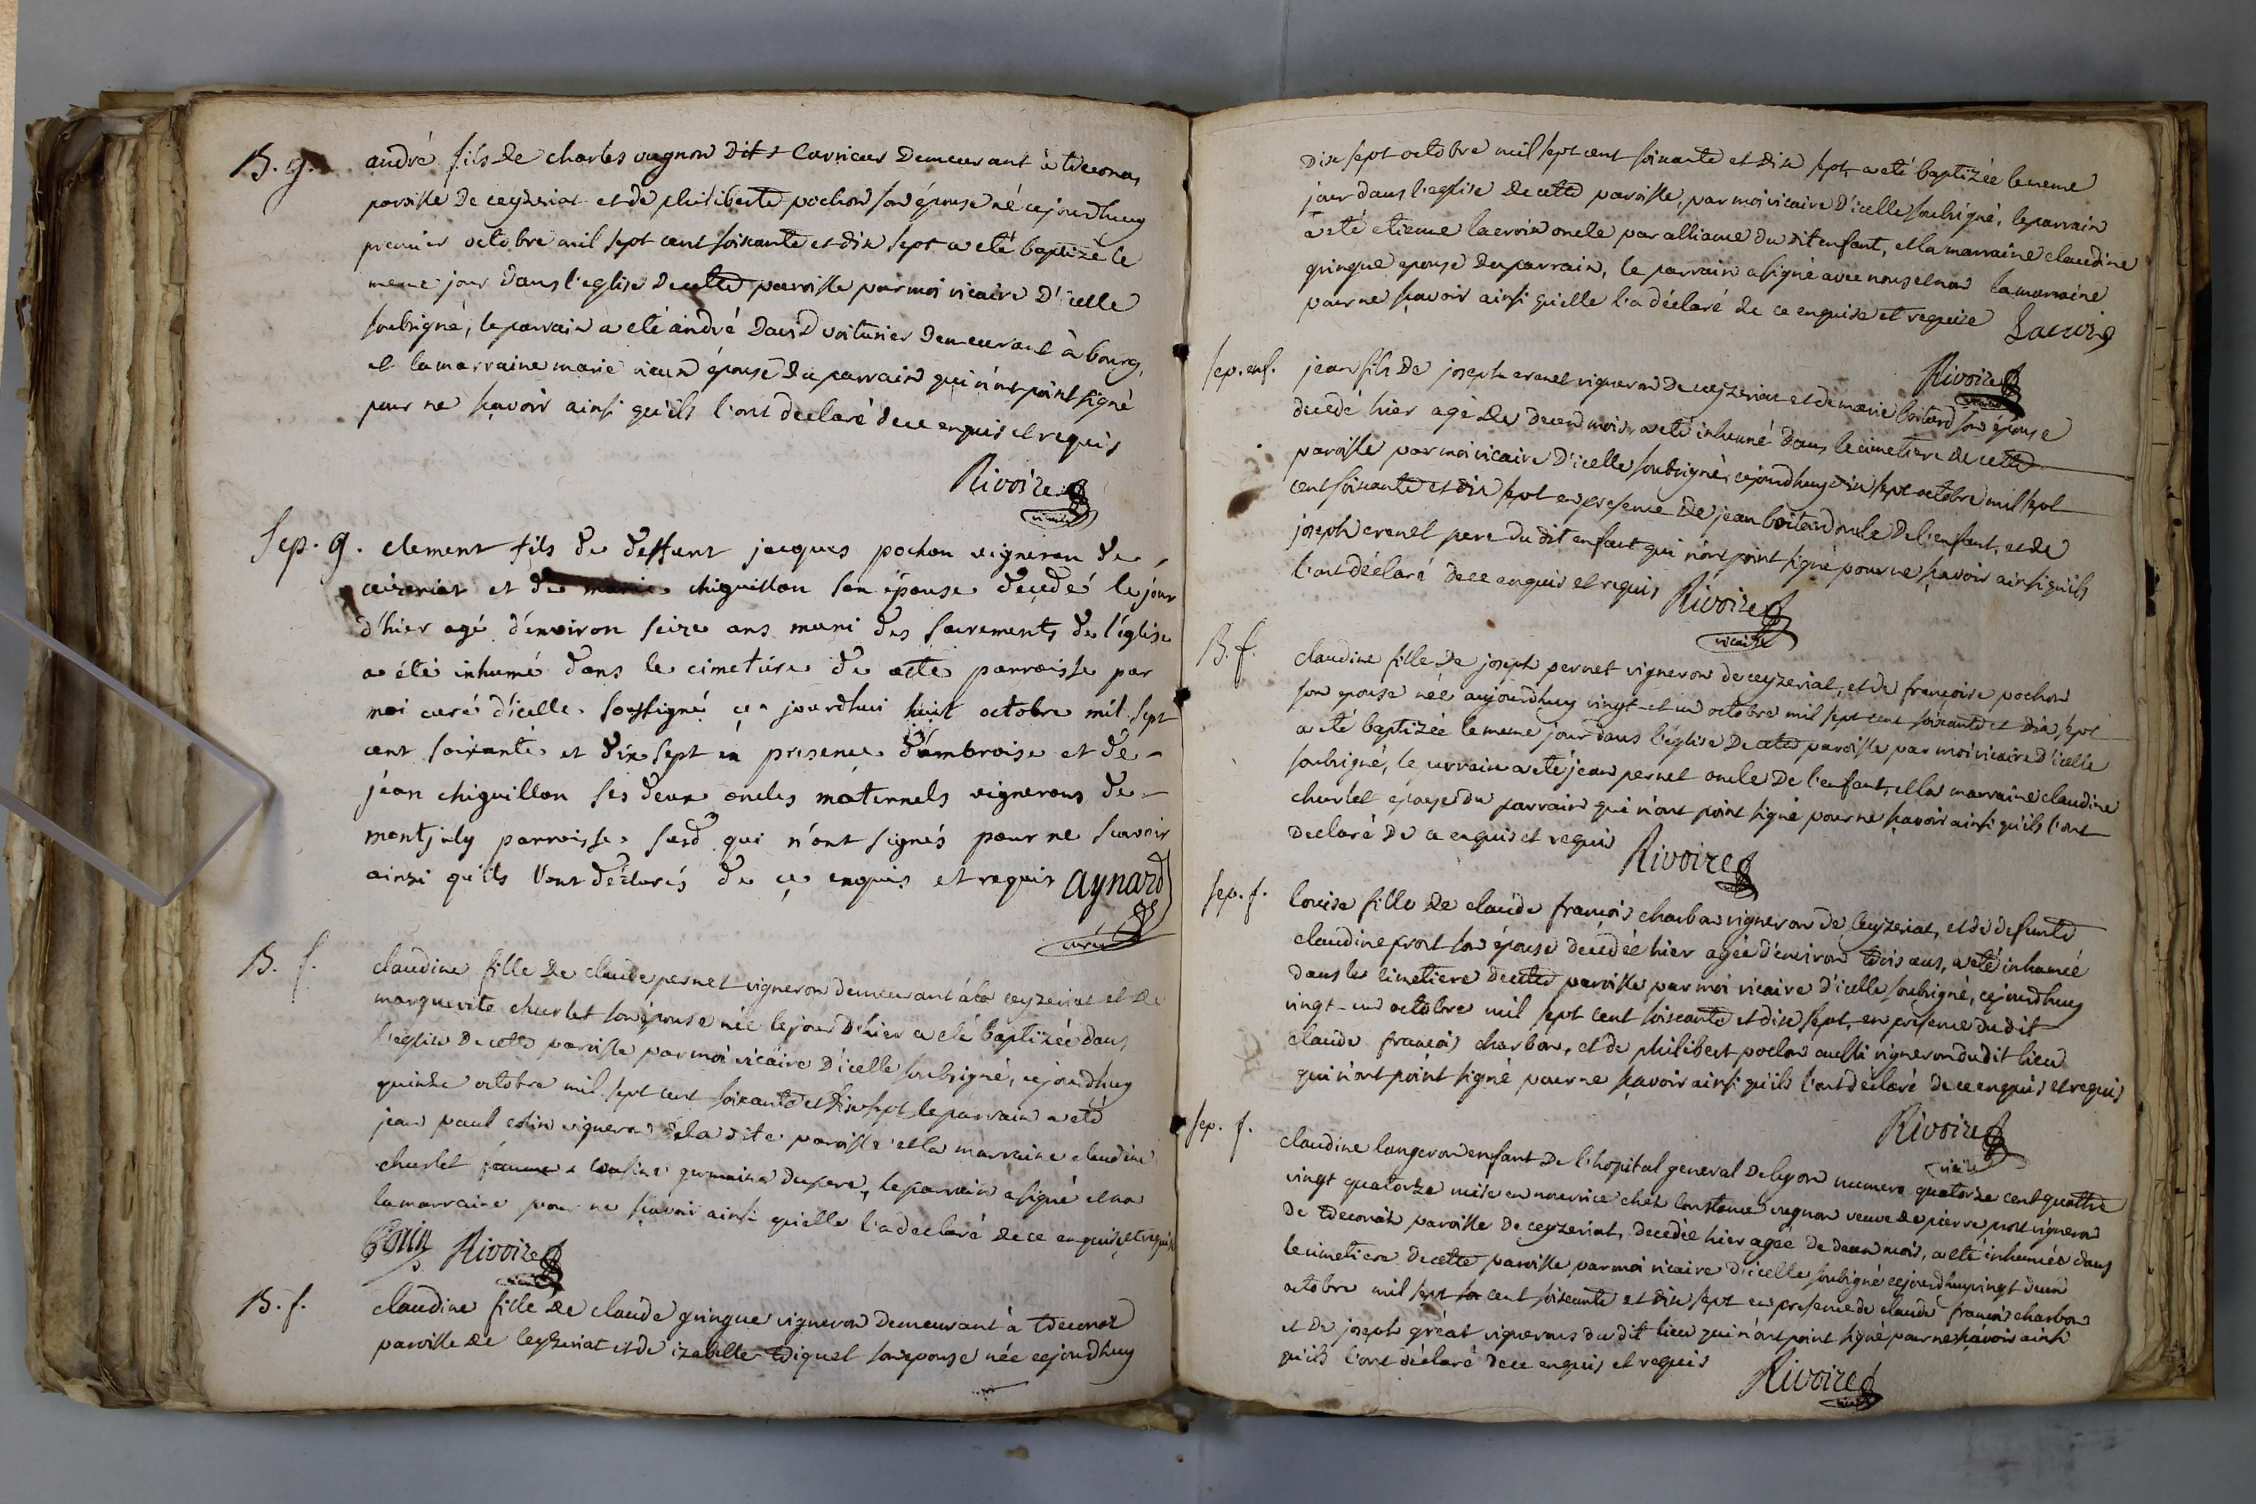 B. g. andré fils de charles vugnon dit Carnier demeurant à tréconas
paroisse de ceyzeriat et de philiberte pochon son épouse né cejourdhuy
premier octobre mil sept cent soixante et dix sept a eté baptizé le
meme jour dans l'eglise de cette paroisse par moi vicaire d'icelle
soubsigné, le parrain a eté andré david voiturier demeurant à bourg,
et la marraine marie épouse du parrain qui n'ont point signé
pour ne sçavoir ainsi qu'ils l'ont declaré de ce enquis et requis
Rivoire
vicaire
sep. g. clement fils de deffunt jacques pochon vigneron de
ceizeriat et de marie chiguillon son épouse decedé le jour
d'hier agé d'environ seize ans muni des sacrements de l'église
a été inhumé dans le cimetiére de cette parroisse par
moi curé d'icelle soussigné ce jourdhui huit octobre mil sept
cent soixante et dix sept en presence d'ambroise et de
jéan chiguillon ses deux oncles máternels vignerons de
montjuly parroisse susd. qui n'ont signés pour ne scavoir
ainsi qu'ils l'ont déclarés de ce enquis et requis aynard
curé
B. f. claudine fille de claude pernet vigneron demeurant à ceyzeriat et de
marguerite churlet son épouse née le jour d'hier a eté baptizée dans
l'eglise de cette paroisse par moi vicaire d'icelle soubsigné, cejourdhuy
quinze octobre mil sept cent soixante et dix sept le parrain a eté
jean paul vigneron de la dite paroisse et la marraine claudine
churlet cousine germaine du pere, le parrain a signé et non
la marraine pour ne sçavoir ainsi qu'elle l'a declaré de ce enquise et requise
Rivoire
vicaire
B. f. claudine fille de claude gringue vigneron demeurant à tréconas
paroisse de ceyzeriat et de izabelle diguet son epouse née cejourdhuy
dix sept octobre mil sept cent soixante et dix sept, a eté baptizée le meme
jour dans l'eglise de cette paroisse, par moi vicaire d'icelle soubsigné, le parrain
a eté etienne lacroix oncle par alliance du dit enfant, et la marraine claudine
gringue epouse du parrain, le parrain a signé avec nous et non la marraine
pour ne sçavoir ainsi qu'elle l'a déclaré de ce enquise et requise Lacroix
Rivoire
vicaire
sep. enf. jean fils de joseph crenet vigneron de ceyzeriat et de marie boitard son épouse
decedé hier agé de deux mois a eté inhumé dans le cimetiere de cette
paroisse par moi vicaire d'icelle soubsigné, cejourdhuy dix sept octobre mil sept
cent soixante et dix sept en presence de jean boitard oncle de l'enfant, et de
joseph crenet pere du dit enfant qui n'ont point signé pour ne sçavoir ainsi qu'ils
l'ont déclaré de ce enquis et requis Rivoire
vicaire
B. f. claudine fille de joseph pernet vigneron de ceyzeriat, et de françoise pochon
son epouse née aujourdhuy vingt et un octobre mil sept cent soixante et dix sept
a eté baptizée le meme jour dans l'église de cette paroisse par moi vicaire d'icelle
soubsigné, le parrain a eté jean pernet oncle de l'enfant, et la marraine claudine
churlet épouse du parrain qui n'ont point signé pour ne sçavoir ainsi qu'ils l'ont
declaré de ce enquis et requis Rivoire
sep. f. louise fille de claude françois charbon vigneron de Ceyzeriat, et de defunte
claudine pront son épouse decedée hier agée d'environ trois ans, a eté inhumée
dans le cimetiere de cette paroisse par moi vicaire d'icelle soubsigné, cejourdhuy
vingt un octobre mil sept cent soixante et dix sept, en presence du dit
claude françois charbon, et de philibert pochon aussi vigneron du dit lieu
qui n'ont point signé pour ne sçavoir ainsi qu'ils l'ont déclaré de ce enquis et requis
Rivoire
vicaire
sep. f. claudine langeron enfant de l'hopital general de lyon numero quatorze cent quattre
vingt quatorze mise en nourrice chez Constance vugnon veuve de pierre pront vigneron
de tréconas paroisse de ceyzeriat, decedée hier agée de deux mois, a eté inhumée dans
le cimetiere de cette paroisse par moi vicaire d'icelle soubsigné cejourdhuy vingt deux
octobre mil sept cent soixante et dix sept en presence de claude françois charbon
et de joseph gréat vignerons du dit lieu qui n'ont point signé pour ne sçavoir ainsi
qu'ils l'ont déclaré de ce enquis et requis
Rivoire
vicaire